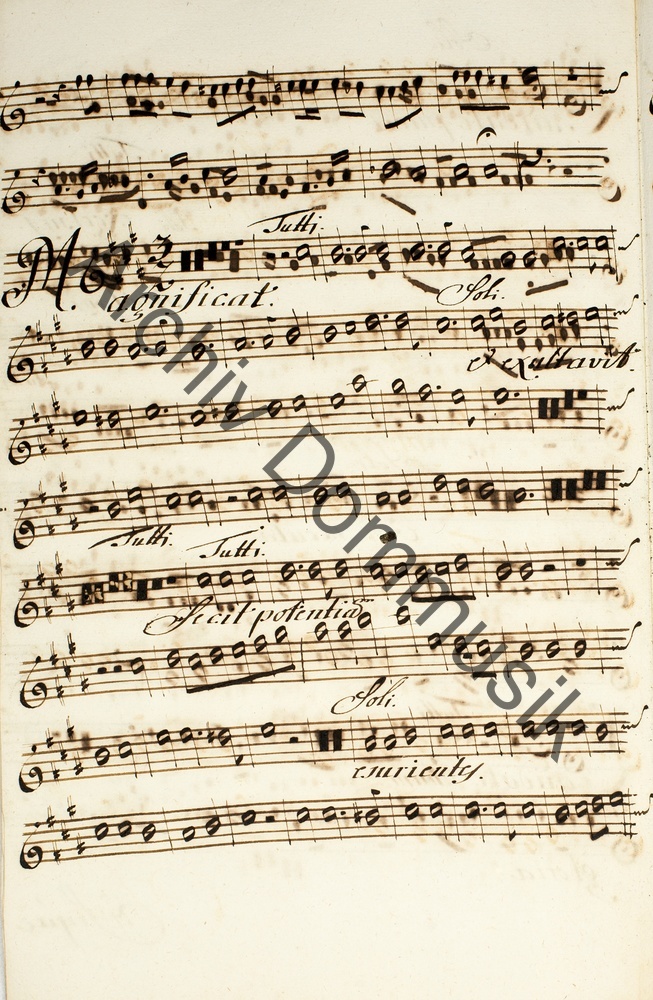 Tutti.
Magnificat.
Soli.
et exultavit.
Tutti. Tutti.
Fecit potentiam
Soli.
esurientes.
Archiv Dommusik